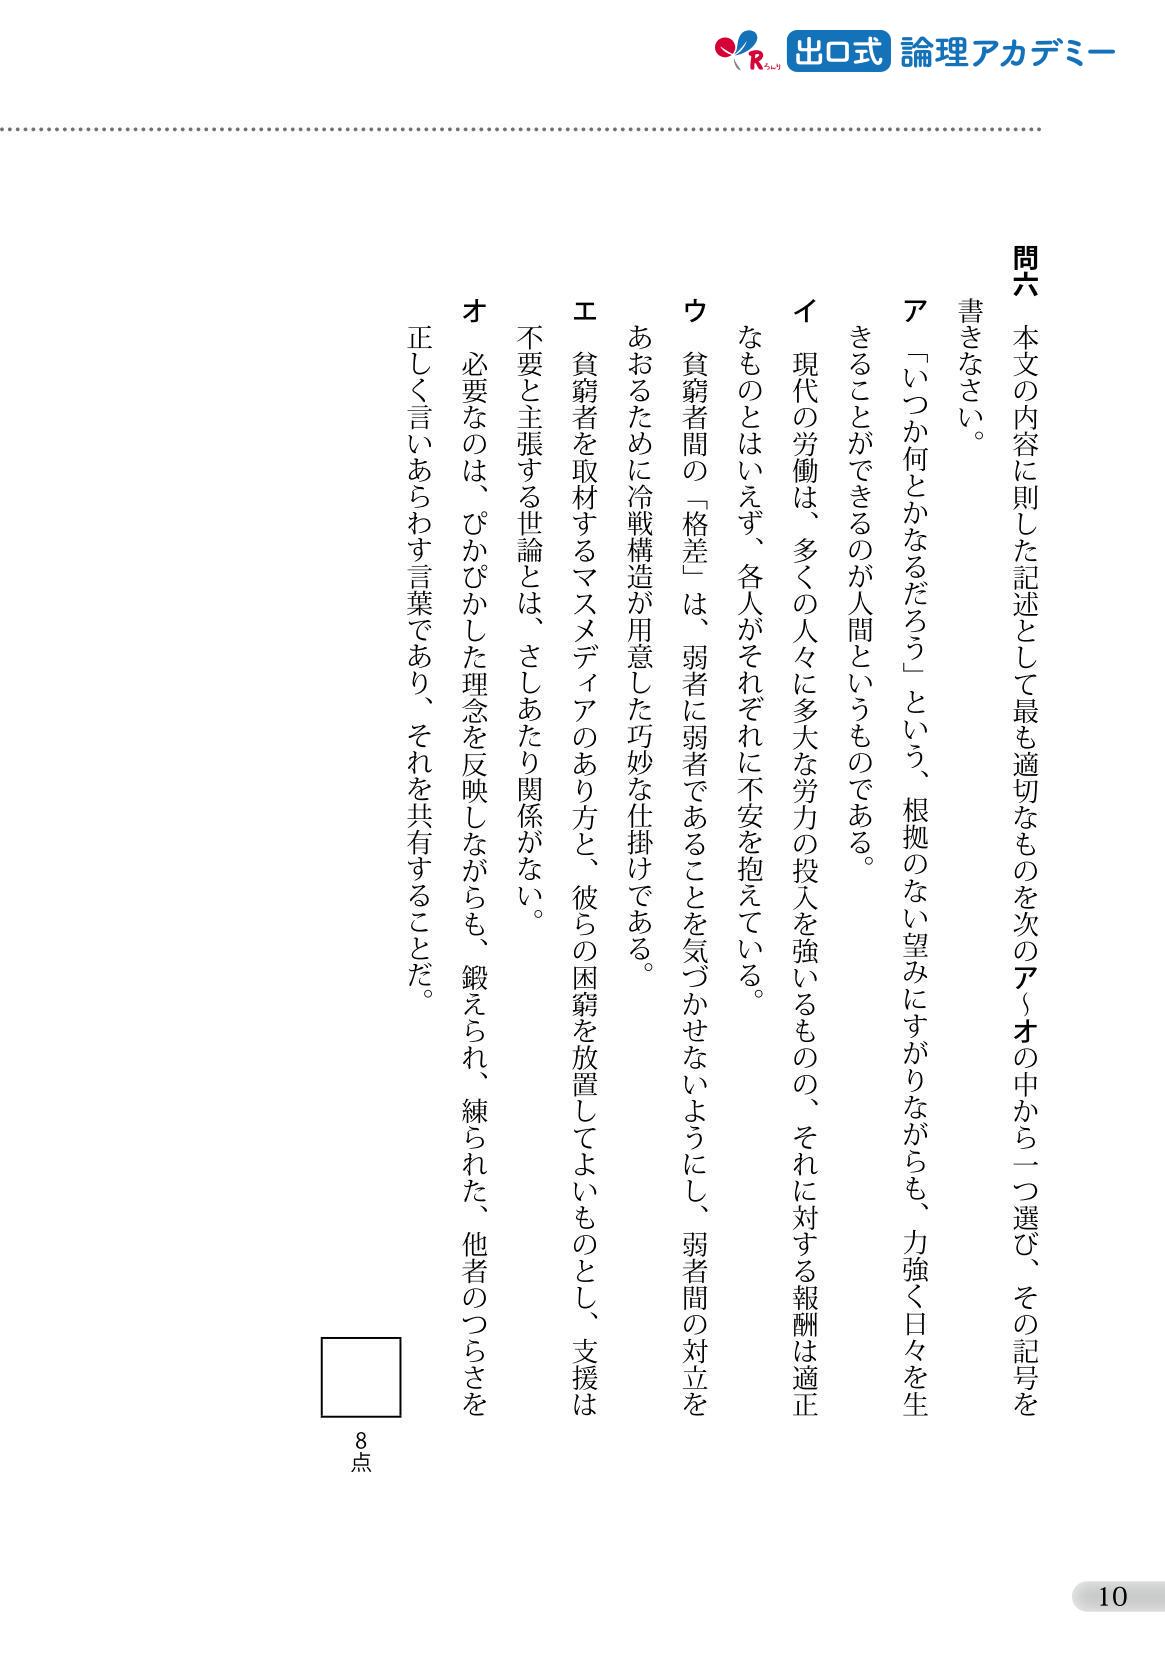 Rろんり 出口式 論理アカデミー
問六 本文の内容に則した記述として最も適切なものを次のア～オの中から一つ選び、その記号を
書きなさい。
ア 「いつか何とかなるだろう」という、根拠のない望みにすがりながらも、力強く日々を生
きることができるのが人間というものである。
イ 現代の労働は、多くの人々に多大な労力の投入を強いるものの、それに対する報酬は適正
なものとはいえず、各人がそれぞれに不安を抱えている。
ウ 貧窮者間の「格差」は、弱者に弱者であることを気づかせないようにし、弱者間の対立を
あおるために冷戦構造が用意した巧妙な仕掛けである。
エ 貧窮者を取材するマスメディアのあり方と、彼らの困窮を放置してよいものとし、支援は
不要と主張する世論とは、さしあたり関係がない。
オ 必要なのは、ぴかぴかした理念を反映しながらも、鍛えられ、練られた、他者のつらさを
正しく言いあらわす言葉であり、それを共有することだ。
8点
10